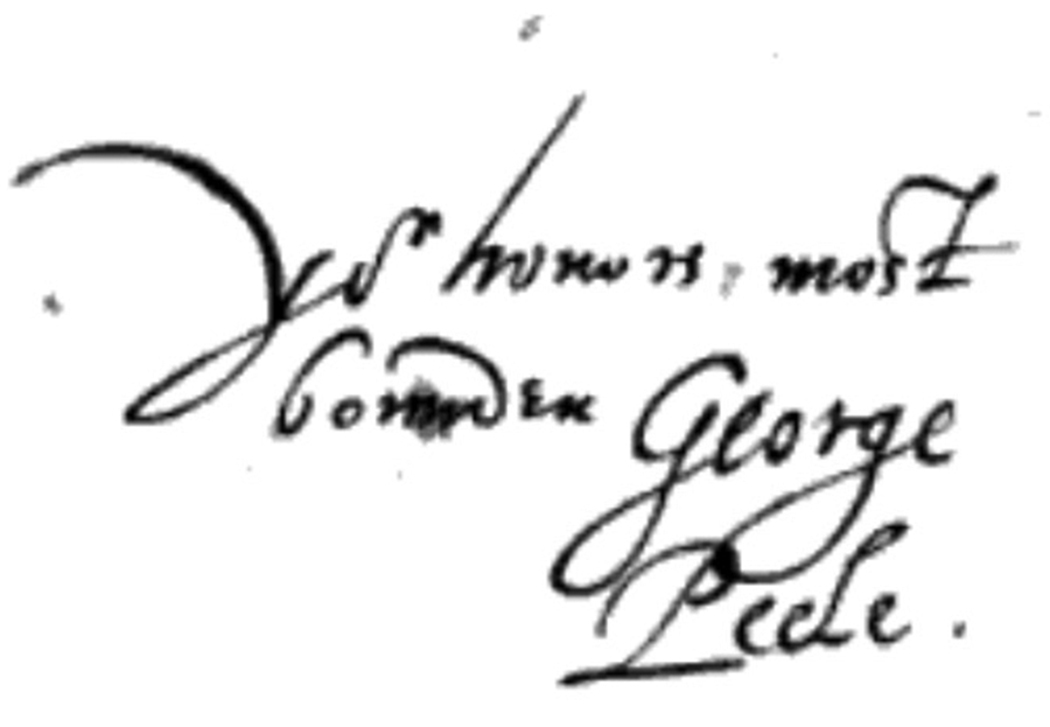 Yor honors most
bounden George
Peele.